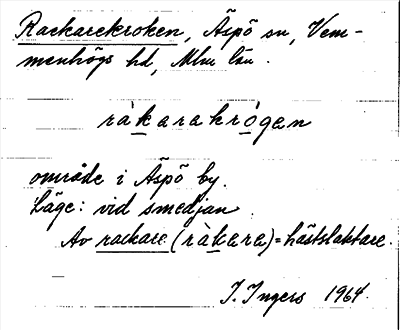 Rackarekroken, Äspö sn, Vem-
menhögs hd, Mlm län.
ràkarakrógan
område i Äspö by.
Läge: vid smedjan
Av rackare (ràkara) = hästslaktare.
I. Ingers 1964.